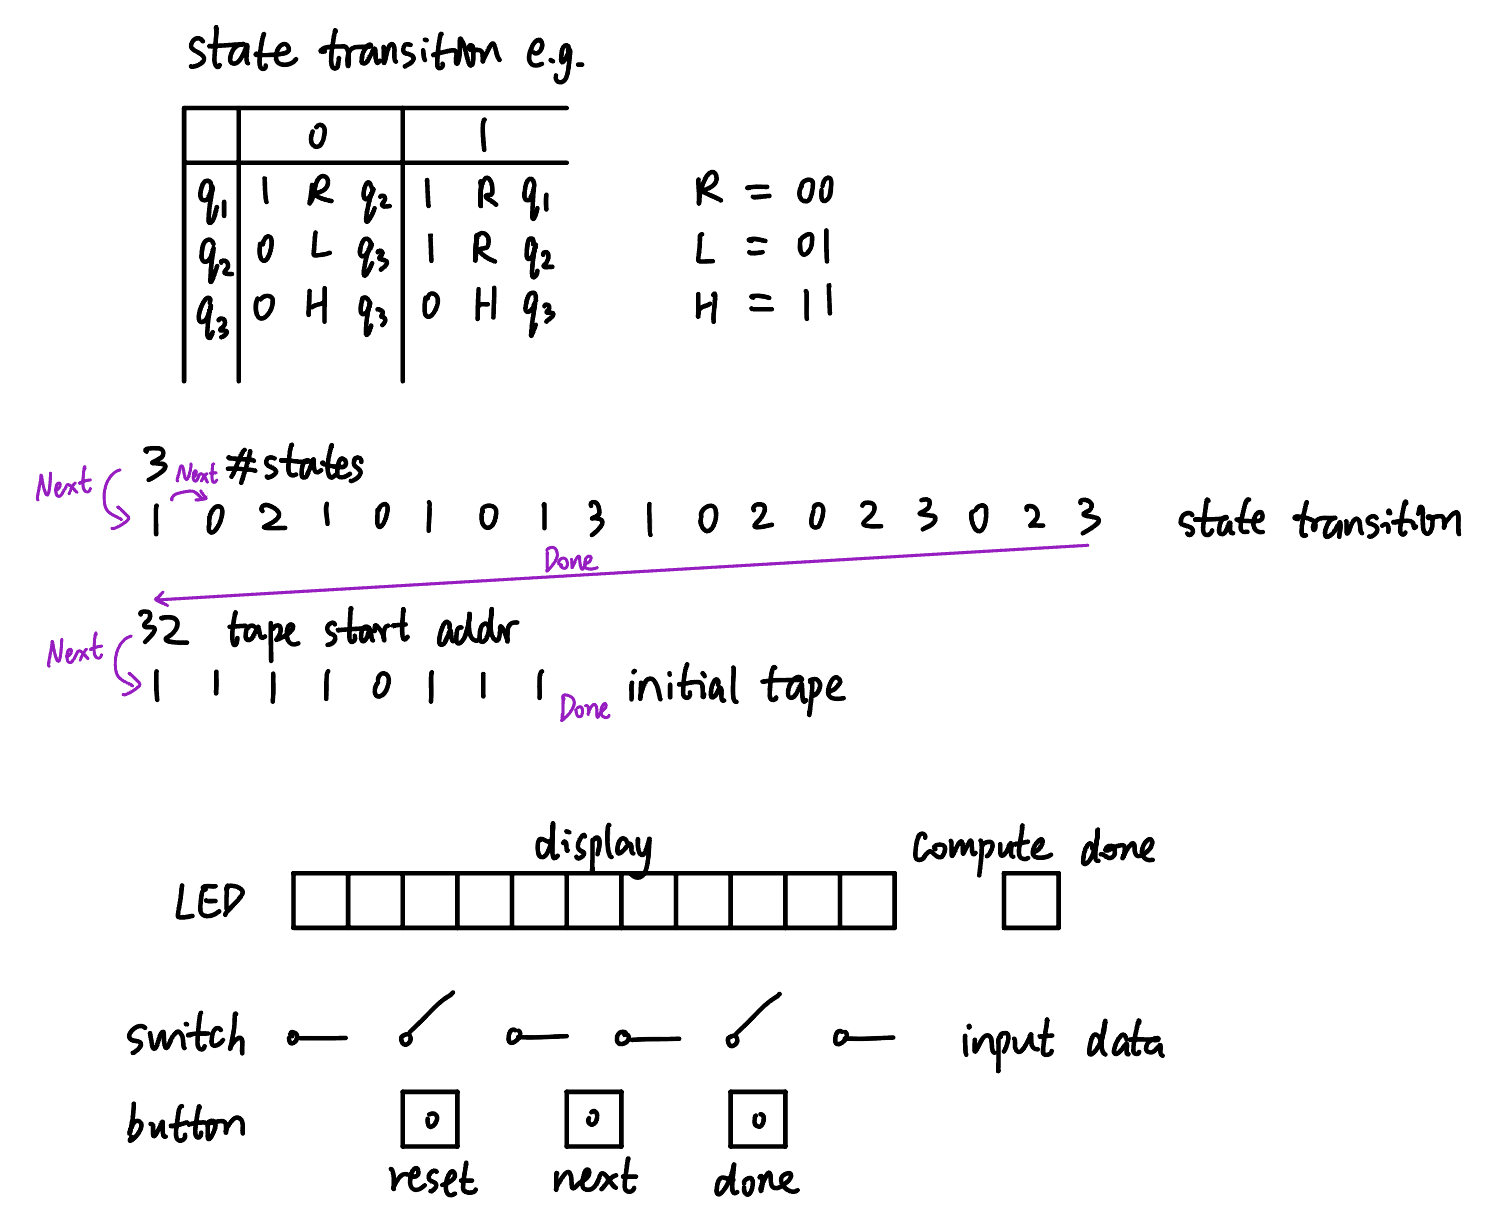 state transition e.g.
0 1
q1 1 R q2 1 R q1
q2 0 L q3 1 R q2
q3 0 H q3 0 H q3
R = 00
L = 01
H = 11
3 Next #states
Next
1 0 2 1 0 1 0 1 3 1 0 2 0 2 3 0 2 3 state transition
Done
32 tape start addr
Next
1 1 1 1 0 1 1 1 Done initial tape
display compute done
LED
switch input data
button 0 0 0
reset next done